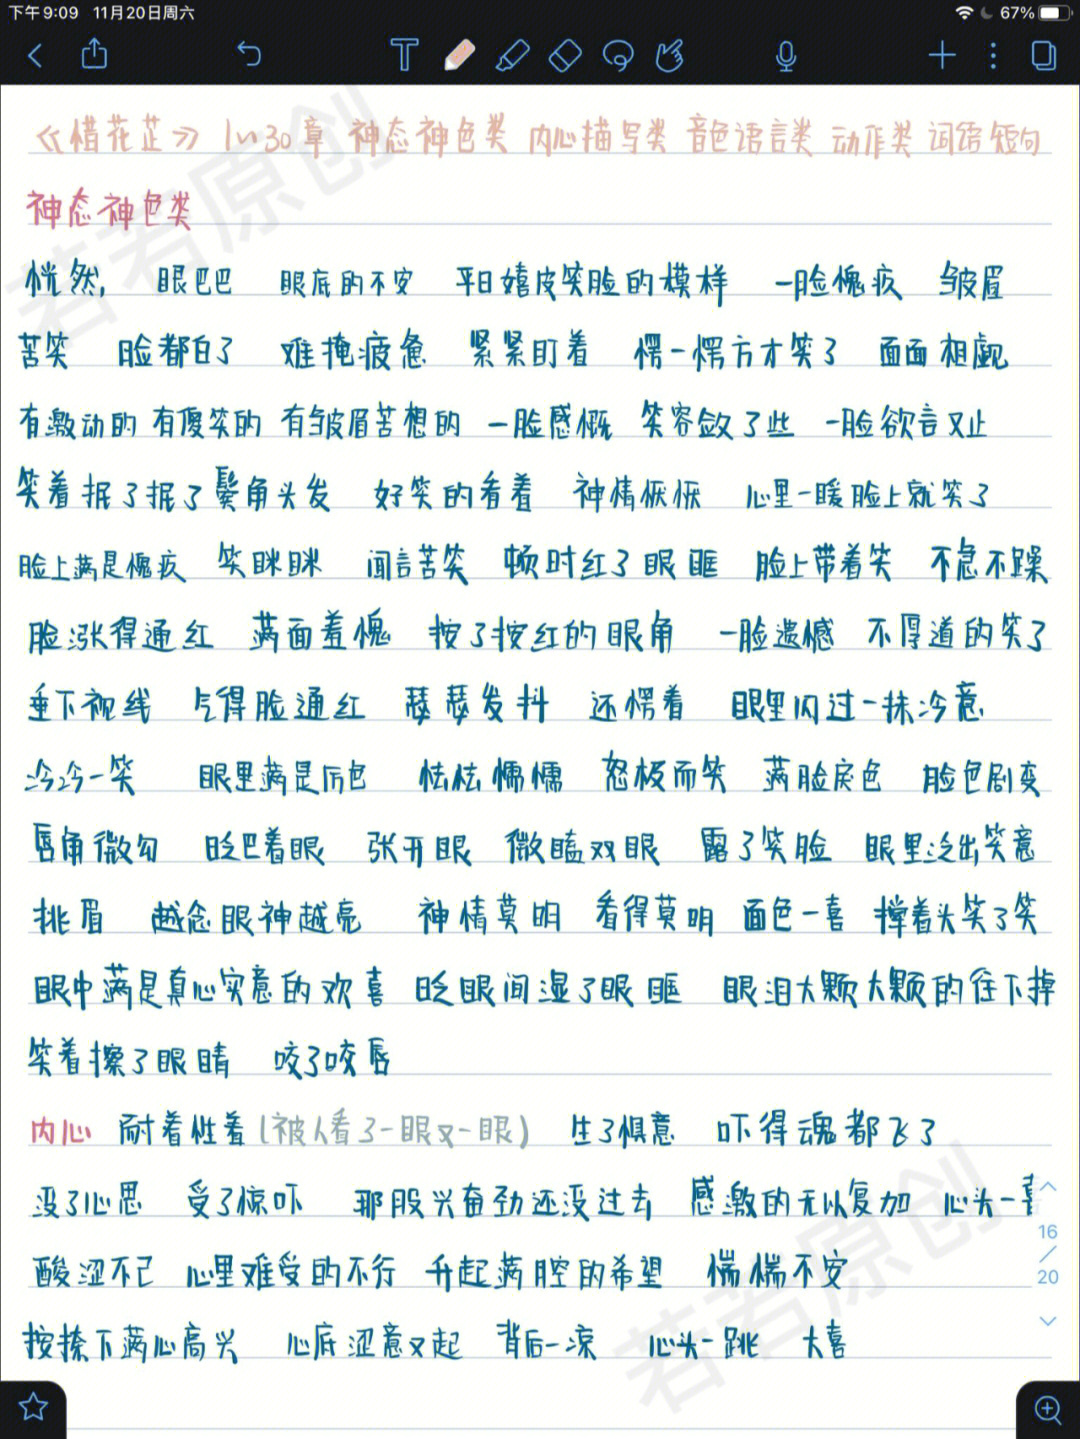 下午9:09 11月20日周六 67%
《惜花芷》1~30章 神态神色类 内心描写类 音色语言类 动作类 词语短句
神态神色类
恍然, 眼巴巴 眼底的不安 平日嬉皮笑脸的模样 一脸愧疚 皱眉
苦笑 脸都白了 难掩疲惫 紧紧盯着 愣一愣方才笑了 面面相觑
有激动的 有傻笑的 有皱眉苦想的 一脸感慨 笑容敛了些 一脸欲言又止
笑着抿了抿了鬓角头发 好笑的看着 神情恹恹 心里一暖脸上就笑了
脸上满是愧疚 笑眯眯 闻言苦笑 顿时红了眼眶 脸上带着笑 不急不躁
脸涨得通红 满面羞愧 按了按红的眼角 一脸遗憾 不厚道的笑了
垂下视线 气得脸通红 瑟瑟发抖 还愣着 眼里闪过一抹冷意
冷冷一笑 眼里满是厉色 怯怯懦懦 怒极而笑 满脸戾色 脸色剧变
唇角微勾 眨巴着眼 张开眼 微瞌双眼 露了笑脸 眼里泛出笑意
挑眉 越念眼神越亮 神情莫明 看得莫明 面色一喜 撑着头笑了笑
眼中满是真心实意的欢喜 眨眼间湿了眼眶 眼泪大颗大颗的往下掉
笑着擦了眼睛 咬了咬唇
内心 耐着性着(被人看了一眼又一眼) 生了惧意 吓得魂都飞了
没了心思 受了惊吓 那股兴奋劲还没过去 感激的无以复加 心头一喜
酸涩不已 心里难受的不行 升起满腔的希望 惴惴不安
按捺下满心高兴 心底涩意又起 背后一凉 心头一跳 大喜
16
/
20
若若原创
若若原创